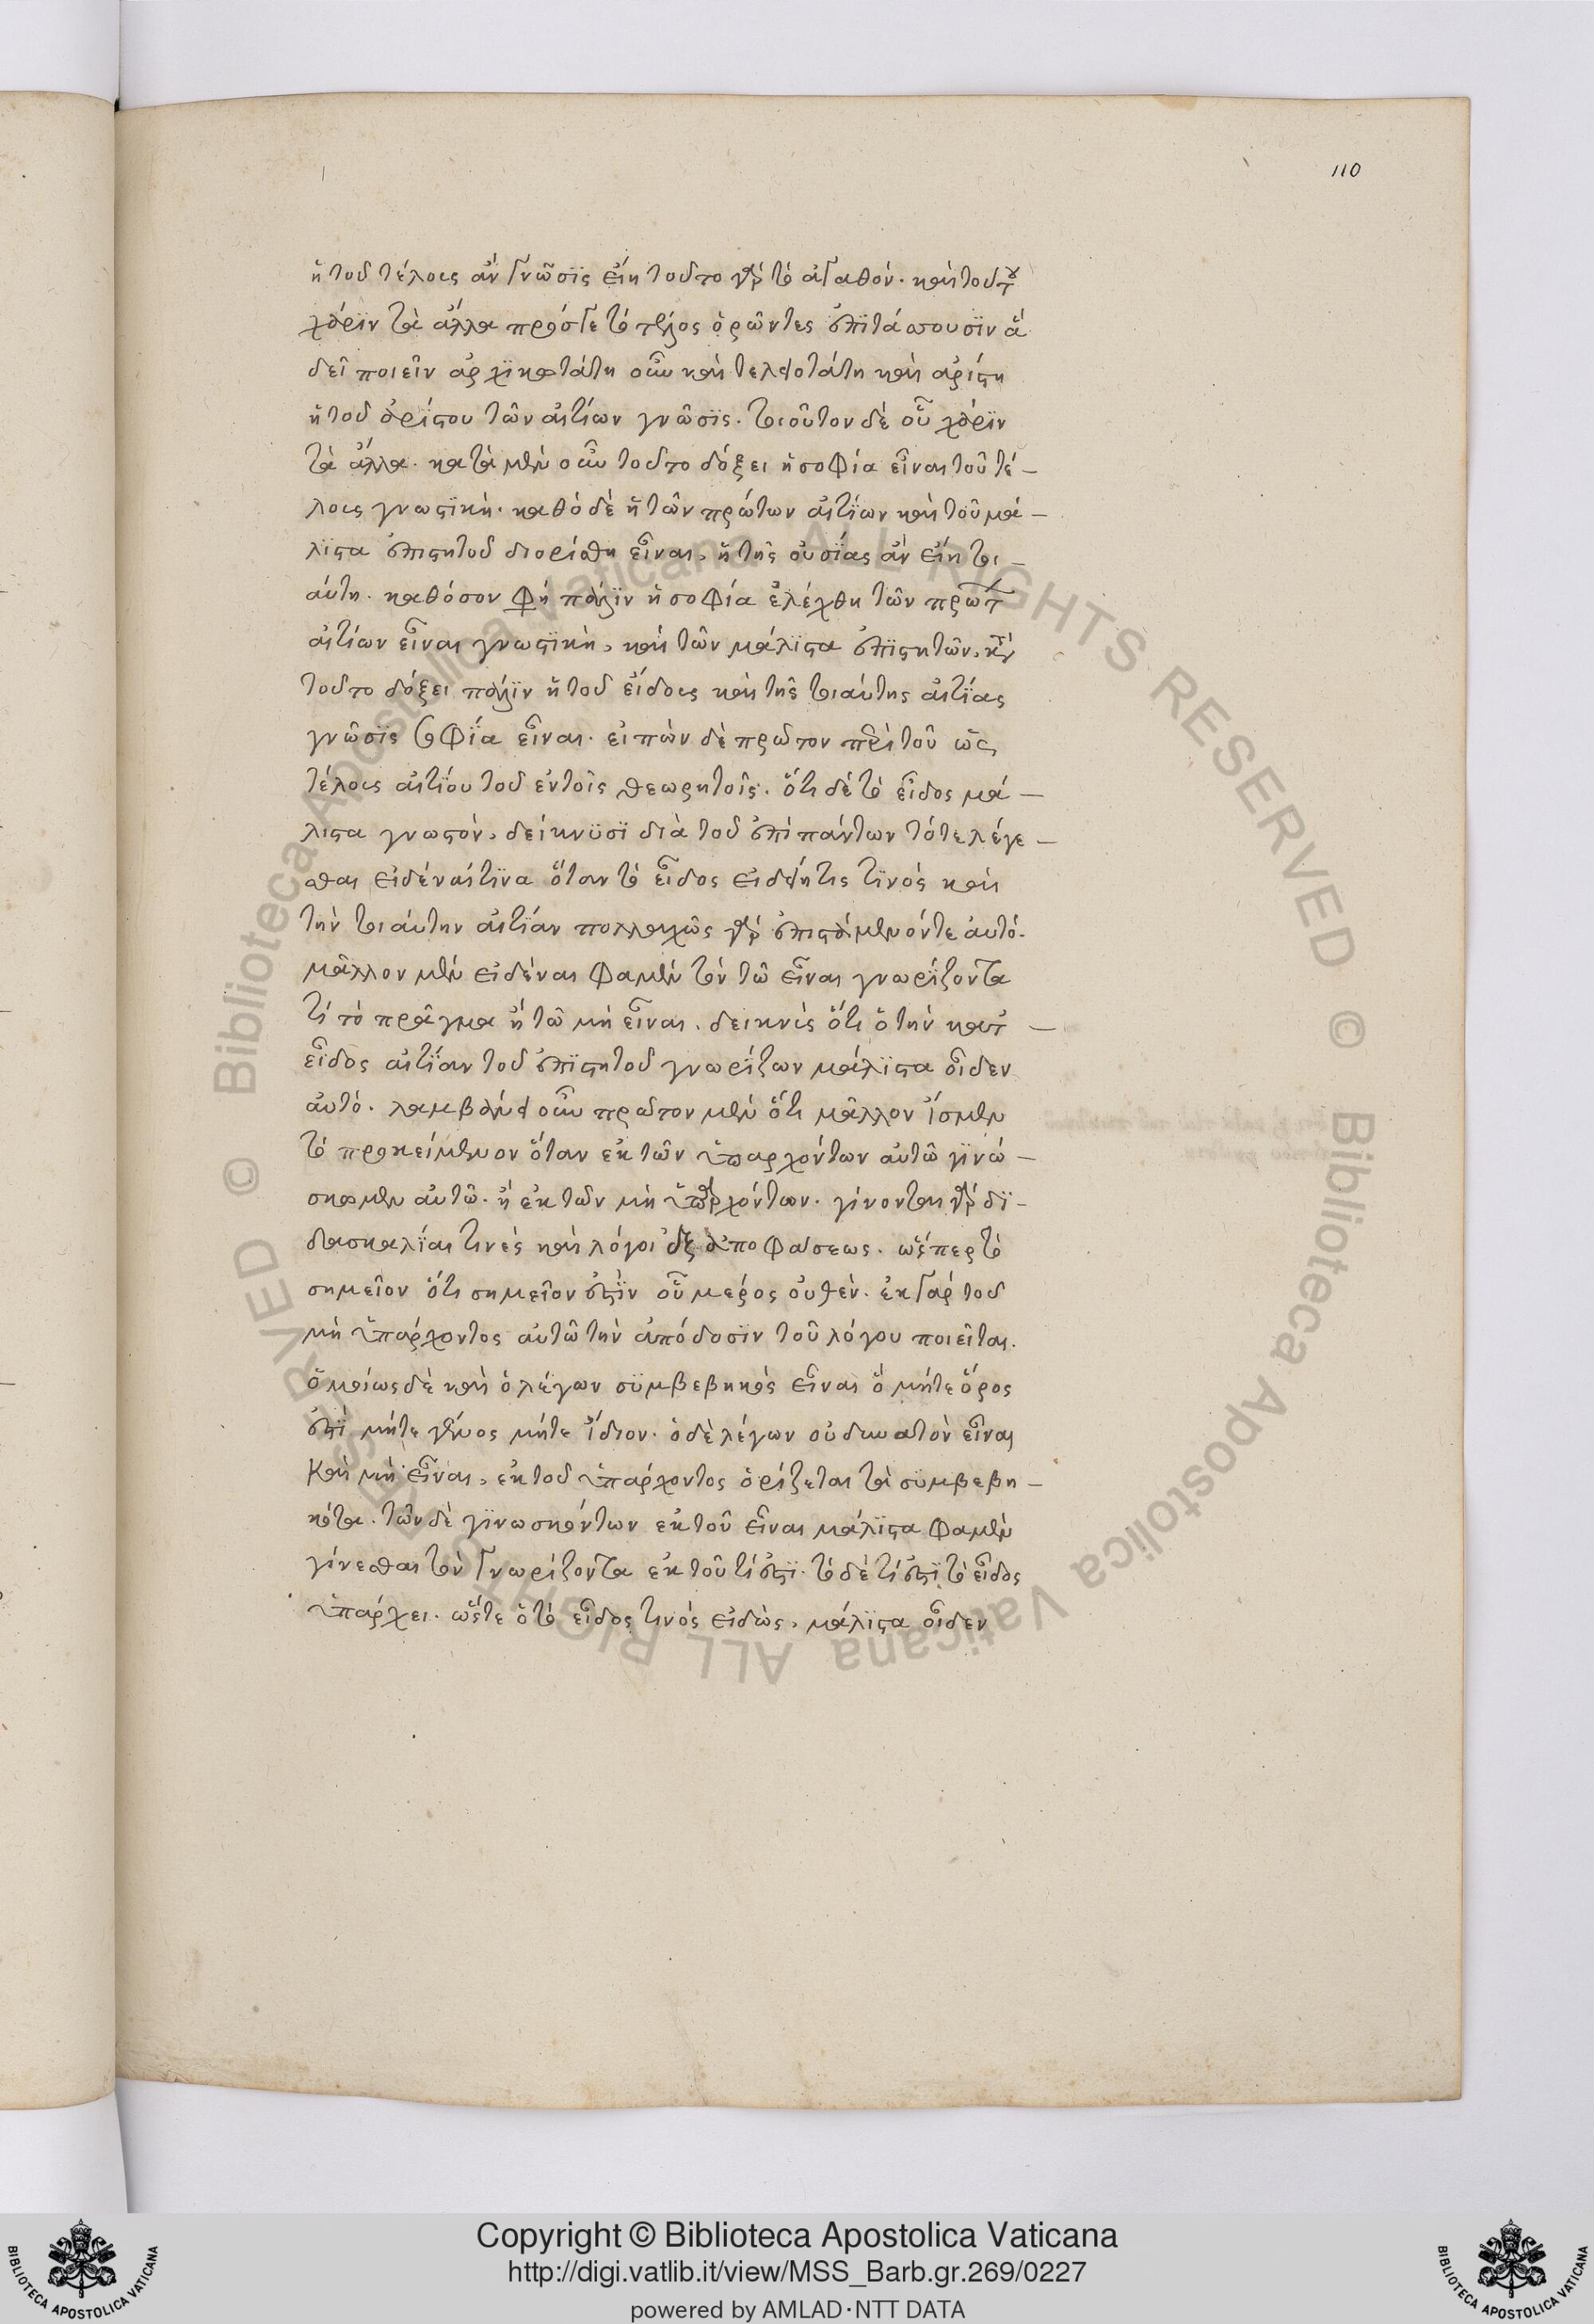 110
ἡ τοῦ τέλους ἂν γνῶσϊς εἴη τοῦτο γὰρ τὸ ἀγαθόν. καὶ τούτου
χάρϊν τὰ ἄλλα πρός γε τὸ τέλος ὁρῶντες ἐπϊτάσσουσϊν ἅ
δεῖ ποιεῖν ἀρχϊκωτάτη οὖν καὶ τελειοτάτη καὶ ἀρίστη
ἡ τοῦ ἀρίστου τῶν αἰτίων γνῶσϊς. τοιοῦτον δὲ οὗ χάρϊν
τὰ ἄλλα. κατὰ μὲν οὖν τοῦτο δόξει ἡ σοφία εἶναι τοῦ τέ-
λους γνωστϊκή. καθὸ δὲ ἡ τῶν πρώτων αἰτϊων καὶ τοῦ μά-
λϊστα ἐπιστητοῦ διορίσθη εἶναι, ἡ τῆς οὐσίας ἂν εἴη τοι-
αύτη. καθόσον φὴ πάλϊν ἡ σοφία ἐλέχθη τῶν πρώτ
αἰτίων εἶναι γνωστϊκὴ, καὶ τῶν μάλϊστα ἐπϊστητῶν, κατὰ
τοῦτο δόξει πάλϊν ἡ τοῦ εἴδους καὶ τῆς τοιαύτης αἰτϊας
γνῶσϊς σοφία εἶναι. εἰπὼν δὲ πρῶτον περὶ τοῦ ὡς
τέλους αἰτϊου τοῦ ἐν τοῖς θεωρητοῖς. ὅτι δὲ τὸ εἶδος μά-
λιστα γνωστόν, δείκνϋσϊ διὰ τοῦ ἐπὶ πάντων τότε λέγε-
σθαι εἰδέναι τϊνα ὅταν τὸ εἶδος εἰδείη τις τϊνὸς καὶ
τὴν τοιαύτην αἰτϊαν πολλαχῶς γὰρ ἐπιστάμενον τε αὐτό.
μᾶλλον μὲν εἰδέναι φαμὲν τὸν τῶ εἶναι γνωρϊζοντα
τί τὸ πρᾶγμα ἢ τῶ μὴ εἶναι. δεικνὺς ὅτι ὁ τὴν κατ -
εἶδος αἰτϊαν τοῦ ἐπϊστητοῦ γνωρϊζων μάλϊστα οἶδεν
αὐτό. λαμβάνει οὖν πρῶτον μὲν ὅτι μᾶλλον ἴσμεν
τὸ προκείμενον ὅταν ἐκ τῶν ὑπαρχόντων αὐτῶ γϊνώ-
σκωμεν αὐτῶ. ἢ ἐκ τῶν μὴ ὑπαρχόντων. γίνονται γὰρ δϊ-
δασκαλίαι τινὲς καὶ λόγοι ἐξ ἀποφάσεως. ὥσπερ τὸ
σημεῖον ὅτι σημεῖον ἐστϊν οὗ μέρος οὐθέν. ἐκ γὰρ τοῦ
μὴ ὑπάρχοντος αὐτῶ τὴν ἀπόδοσϊν τοῦ λόγου ποιεῖται.
ὁμοίως δὲ καὶ ὁ λέγων σϋμβεβηκὸς εἶναι ὃ μήτε ὅρος
ἐστϊ μήτε γένος μήτε ἴδιον. ὁ δὲ λέγων οὐ δυνατὸν εἶναι
Καὶ μὴ εἶναι, ἐκ τοῦ ὑπάρχοντος ὁρίζεται τὰ σϋμβεβη-
κότα. τῶν δὲ γϊνωσκόντων ἐκ τοῦ εἶναι μάλϊστα φαμὲν
γίνεσθαι τὸν γνωρίζοντα ἐκ τοῦ τί ἐστϊ. τὸ δὲ τί ἐστϊ τὸ εἶδος
ὑπάρχει. ὥστε ὁ τὸ εἶδος τινὸς εἰδὼς, μάλϊστα οἶδεν
© Biblioteca Apostolica Vaticana ALL RIGHTS RESERVED
© Biblioteca Apostolica Vaticana ALL RIGHTS RESERVED
BIBLIOTECA APOSTOLICA VATICANA
Copyright © Biblioteca Apostolica Vaticana
http://digi.vatlib.it/view/MSS_Barb.gr.269/0227
powered by AMLAD·NTT DATA
BIBLIOTECA APOSTOLICA VATICANA